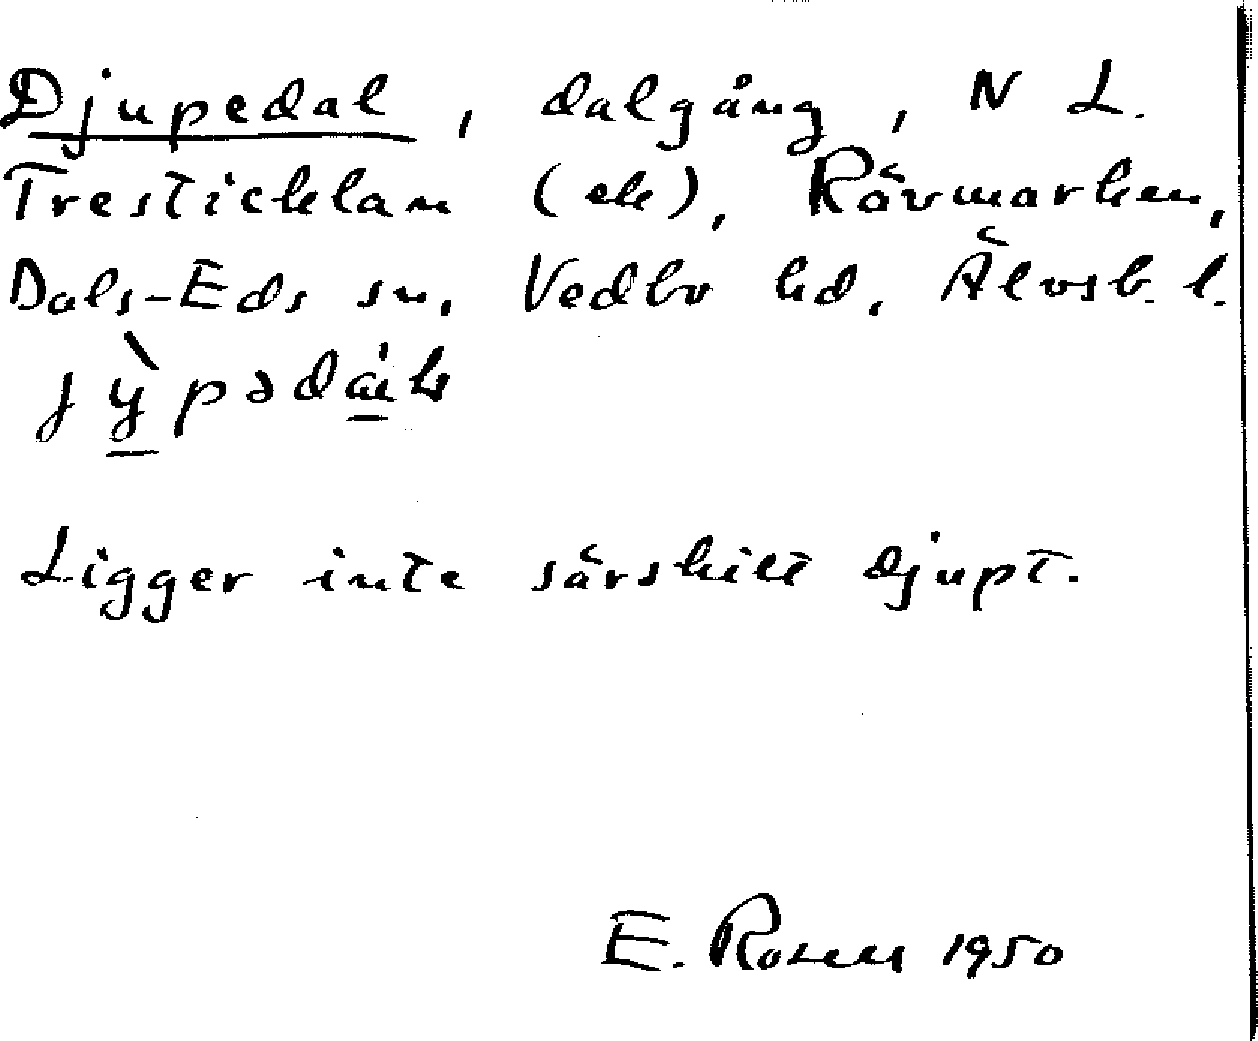 Djupedal, dalgång, N L.
Tresticklan (ek), Rävmarken,
Dals-Eds sn, Vedbo hd, Älvsb. l.
Ligger inte särskilt djupt.
E. Rosen 1950